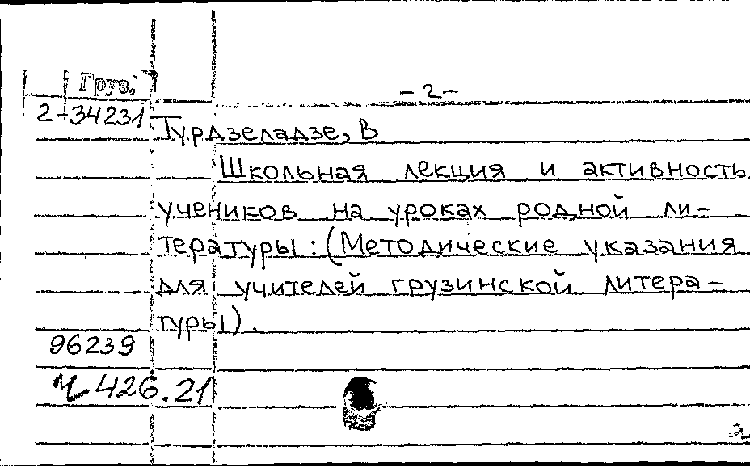 Груз.
- 2 -
2-34231
Турдзеладзе, В
Школьная лекция и активность
учеников на уроках родной ли-
тературы: (Методические указания
для учителей грузинской литера-
туры).
96239
426.21